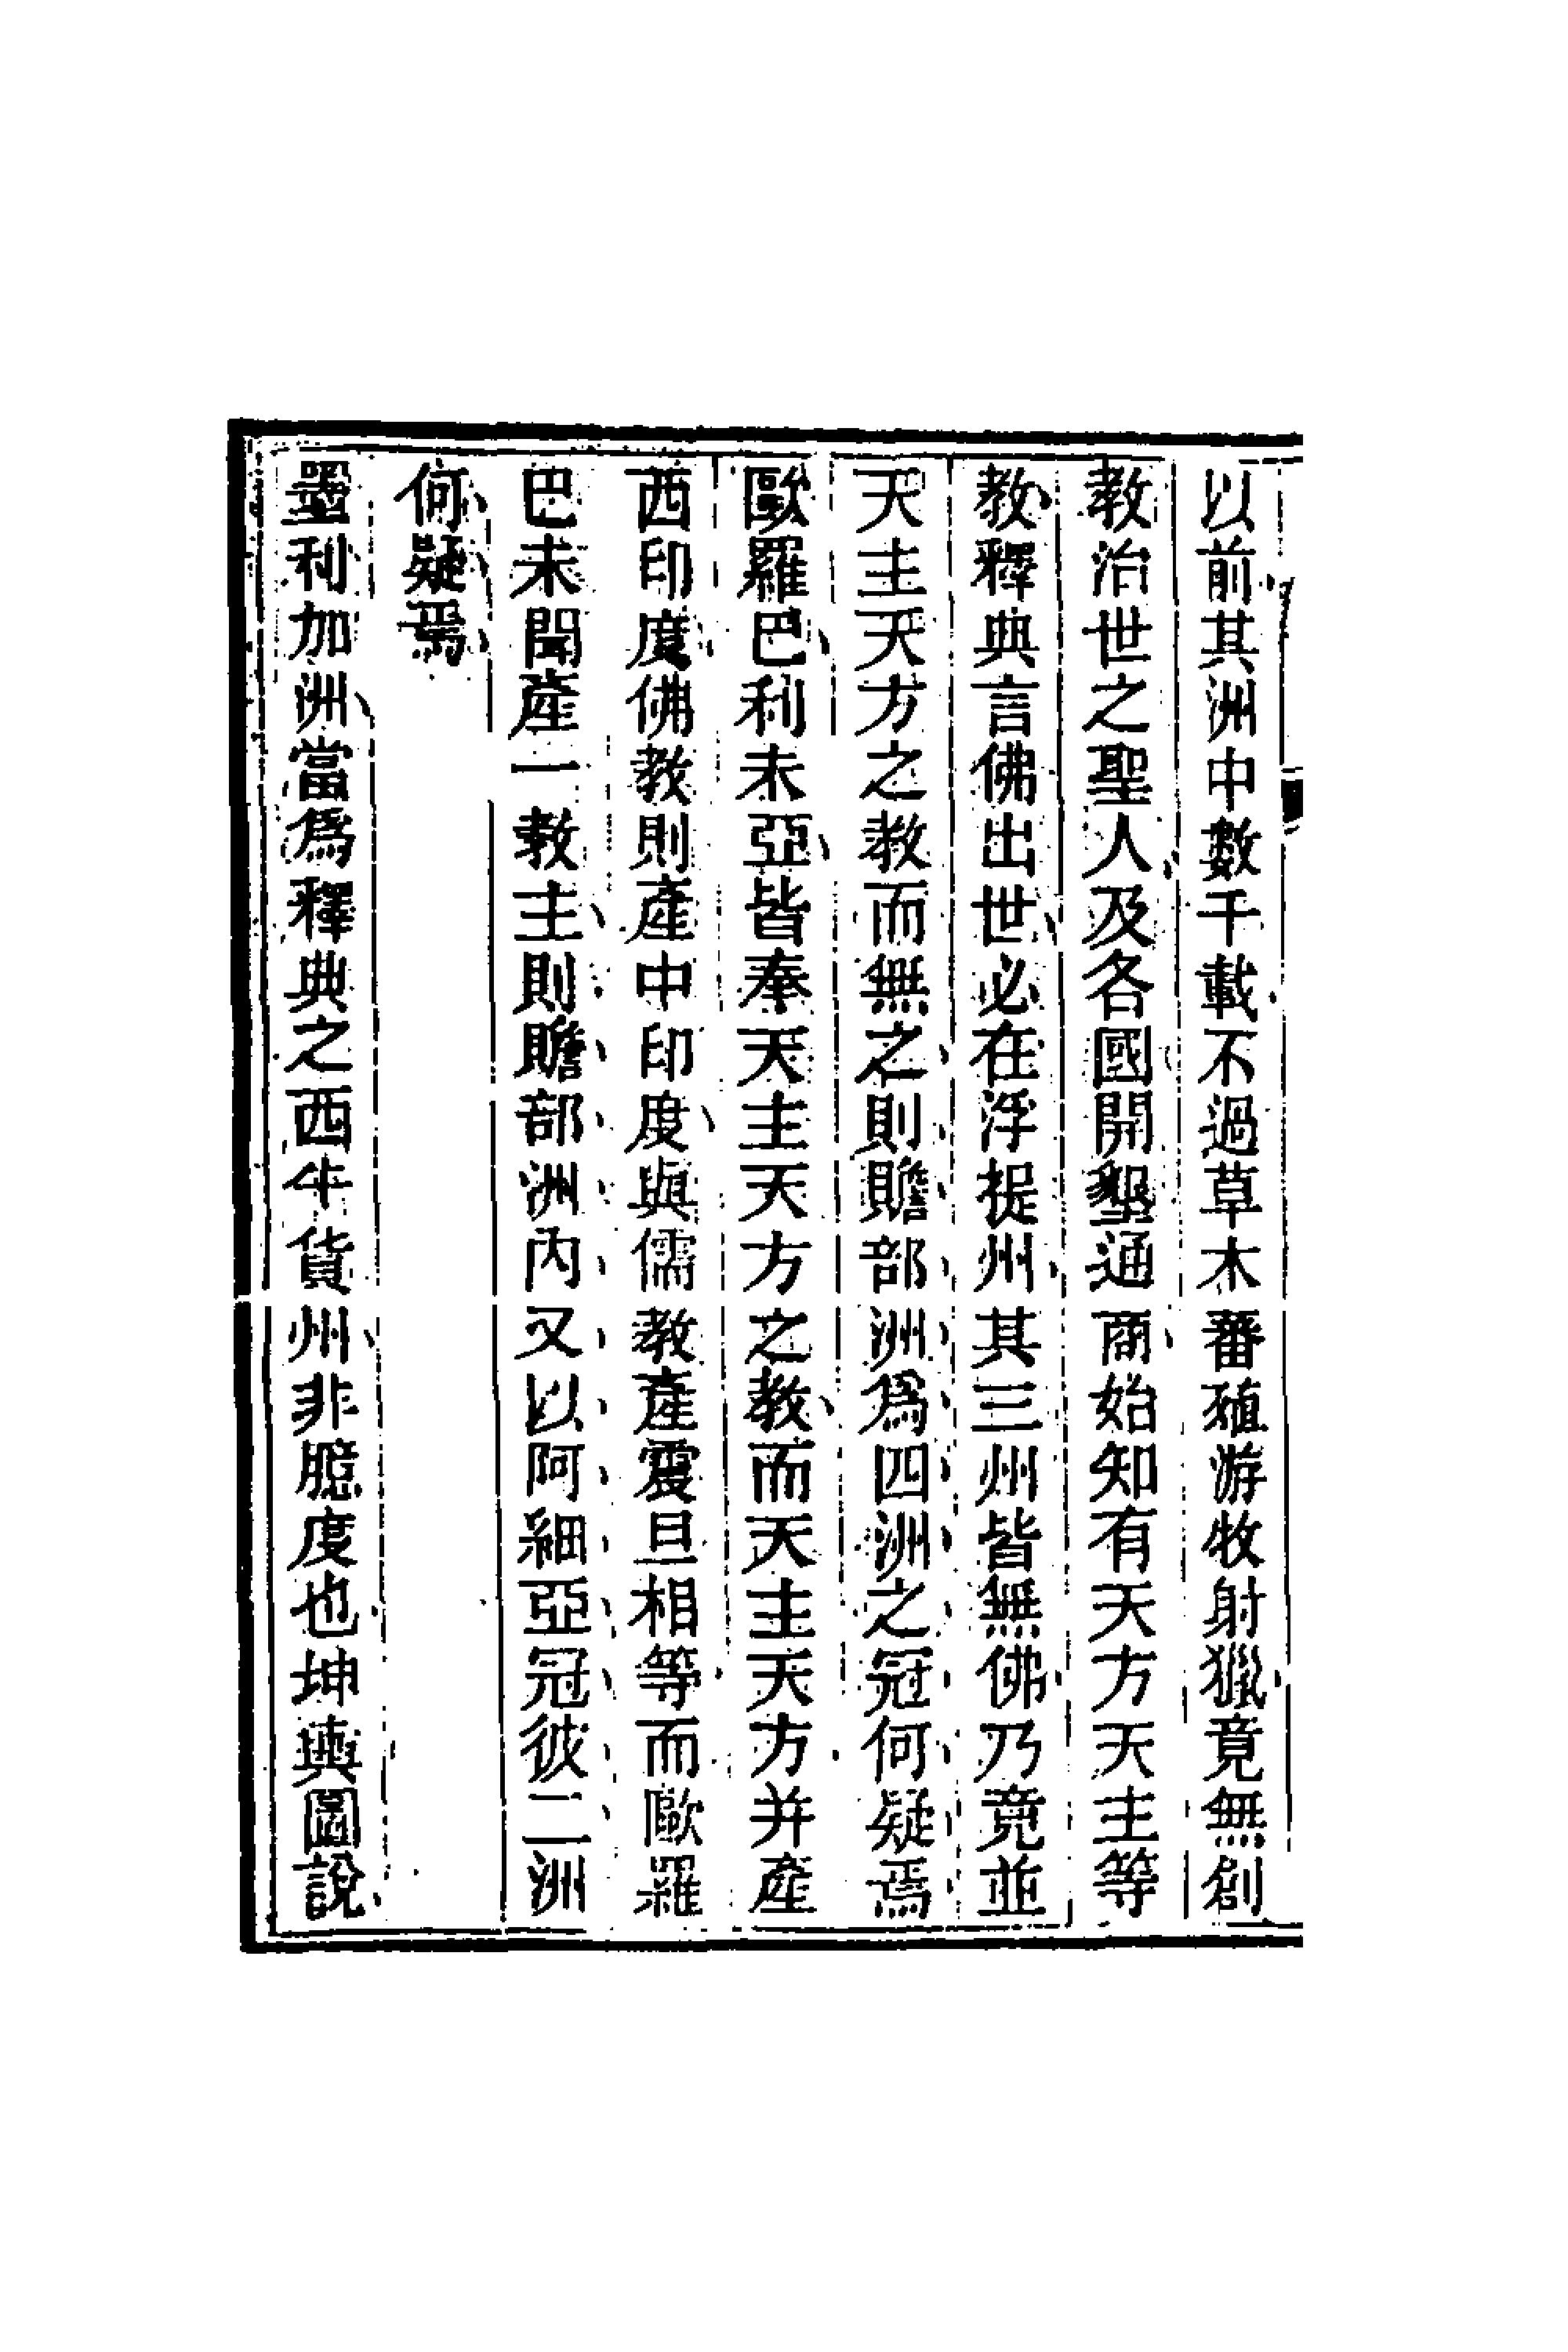 以前其洲中數千載不過草木蕃殖游牧射獵竟無創
教治世之聖人及各國開墾通商始知有天方天主等
教釋典言佛出世必在浮提州其三州皆無佛乃竟並
天主天方之教而無之則贍部洲爲四洲之冠何疑焉
歐羅巴利未亞皆奉天主天方之教而天主天方并產
西印度佛教則產中印度與儒教產震旦相等而歐羅
巴未聞產一教主則贍部洲內又以阿細亞冠彼二洲
何疑焉
墨利加洲當爲釋典之西牛貨州非臆度也坤輿圖說